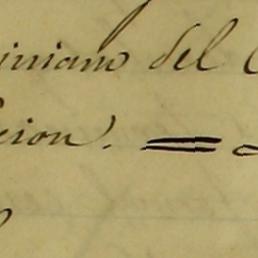 iniano del C
cion. =